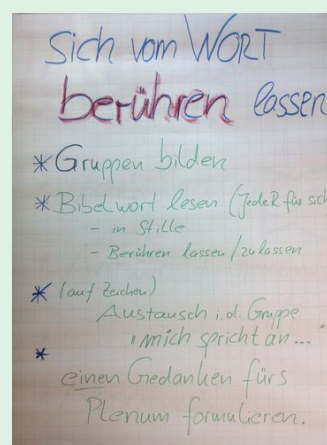 Sich vom WORT
berühren lassen
* Gruppen bilden
* Bibelwort lesen (JedeR für sich
- in Stille
- Berühren lassen / zulassen
* (auf Zeichen)
Austausch i. d. Gruppe
"mich spricht an..."
*
einen Gedanken fürs
Plenum formulieren.